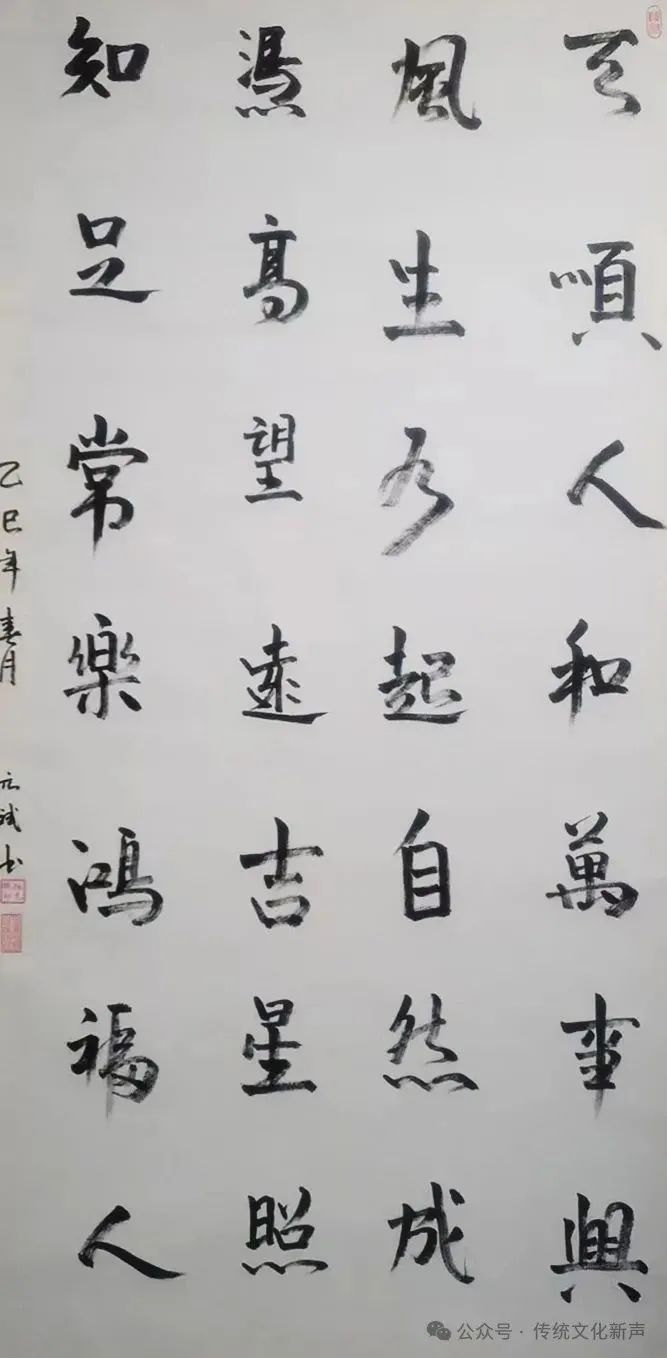 天順人和萬事興
風生水起自然成
憑高望遠吉星照
知足常樂鴻福人
乙巳年春月
元斌书
公众号·传统文化新声